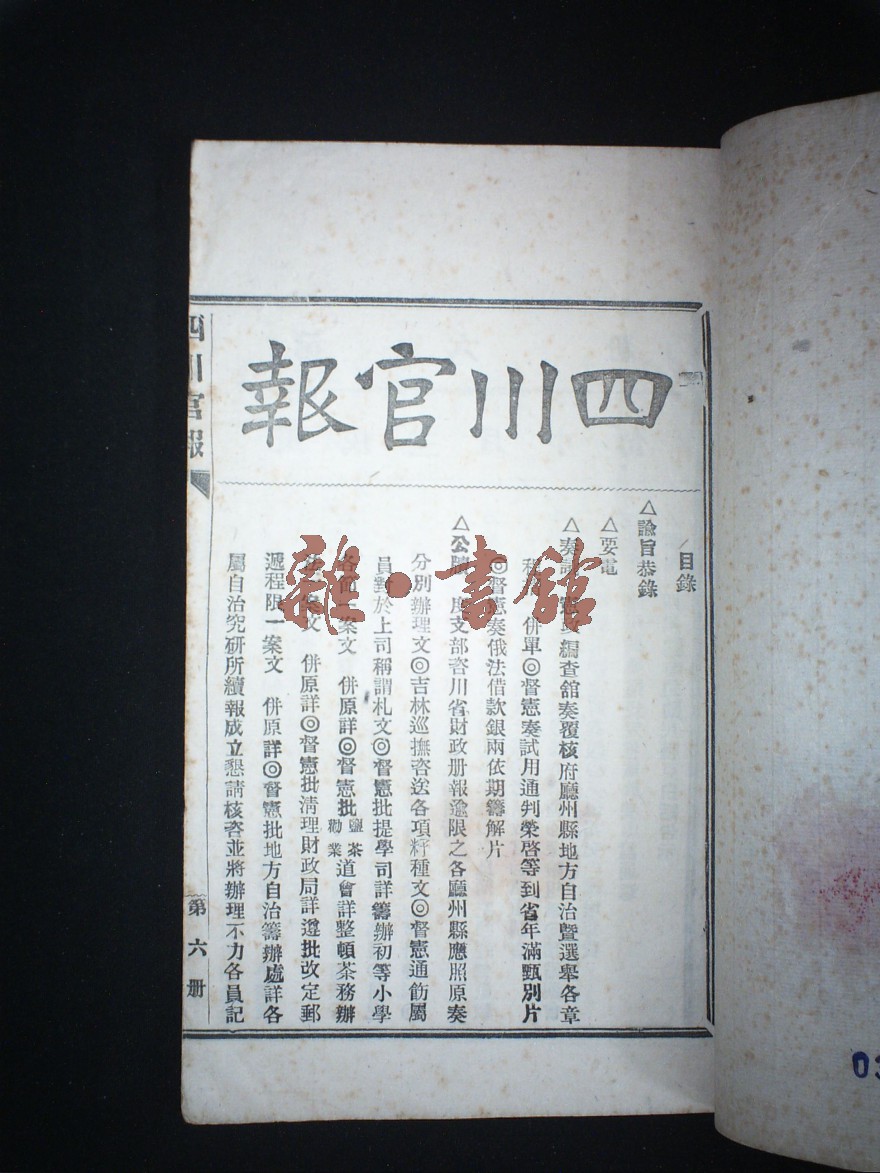 四川官報
目錄
△諭旨恭錄
△要電
△奏議 憲政編查舘奏覆核府廳州縣地方自治暨選舉各章
程 併單◎督憲奏試用通判榮啓等到省年滿甄別片
◎督憲奏俄法借款銀兩依期籌解片
△公牘 度支部咨川省財政册報逾限之各廳州縣應照原奏
分別辦理文◎吉林巡撫咨送各項籽種文◎督憲通飭屬
員對於上司稱謂札文◎督憲批提學司詳籌辦初等小學
各 一案文 併原詳◎督憲批鹽茶勸業道會詳整頓茶務辦
一案文 併原詳◎督憲批清理財政局詳遵批改定郵
遞程限一案文 併原詳◎督憲批地方自治籌辦處詳各
屬自治究研所續報成立懇請核咨並將辦理不力各員記
四川官報
第六册
雜·書館
03